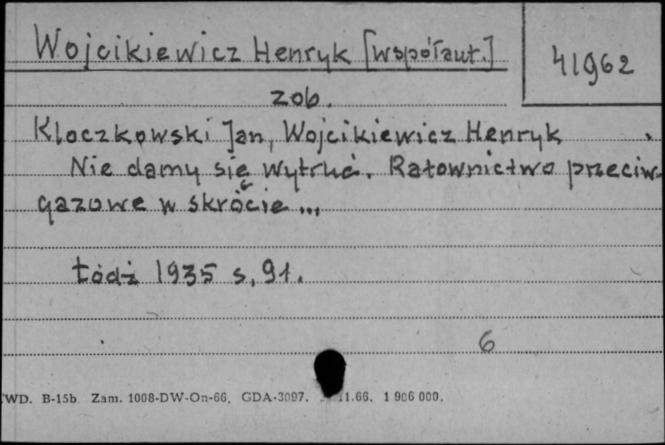 Wojcikiewicz Henryk [współaut.]
41962
zob.
Kloczkowski Jan, Wojcikiewicz Henryk
Nie damy się wytruć. Ratownictwo przeciw-
gazowe w skrócie ...
Łódź 1935 s. 91.
6
WD. B-15b Zam. 1008-DW-On-66. GDA-3097. 11.66. 1 906 000.